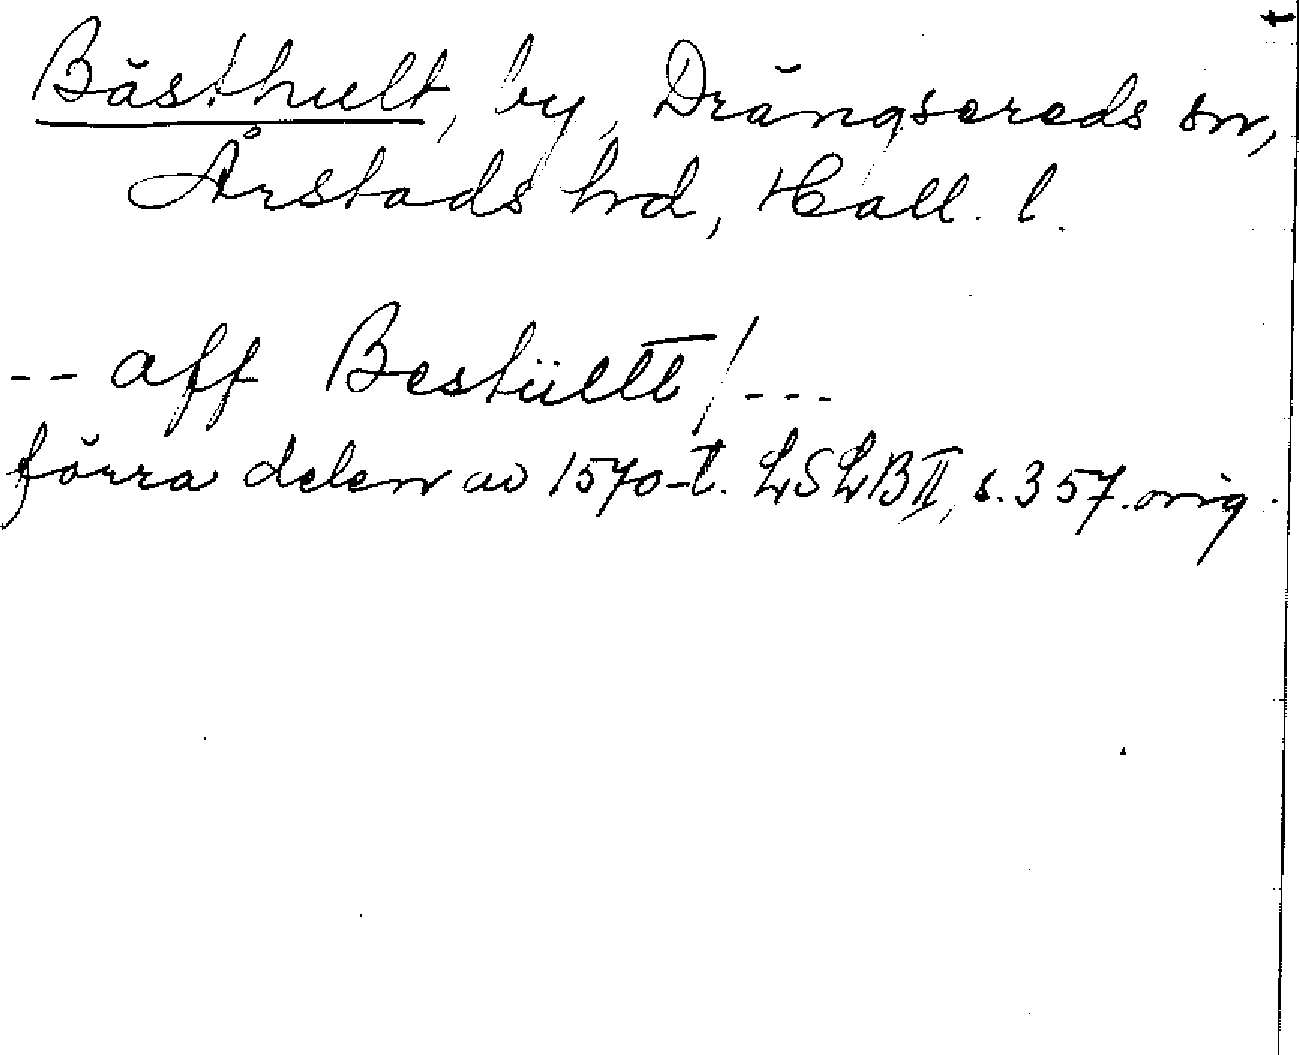 Bästhult, by, Drängsereds sn,
Årstads hd, Hall. l.
-- aff Bestüllt /---
förra delen av 1570-t. LSLB II, s. 357. orig.